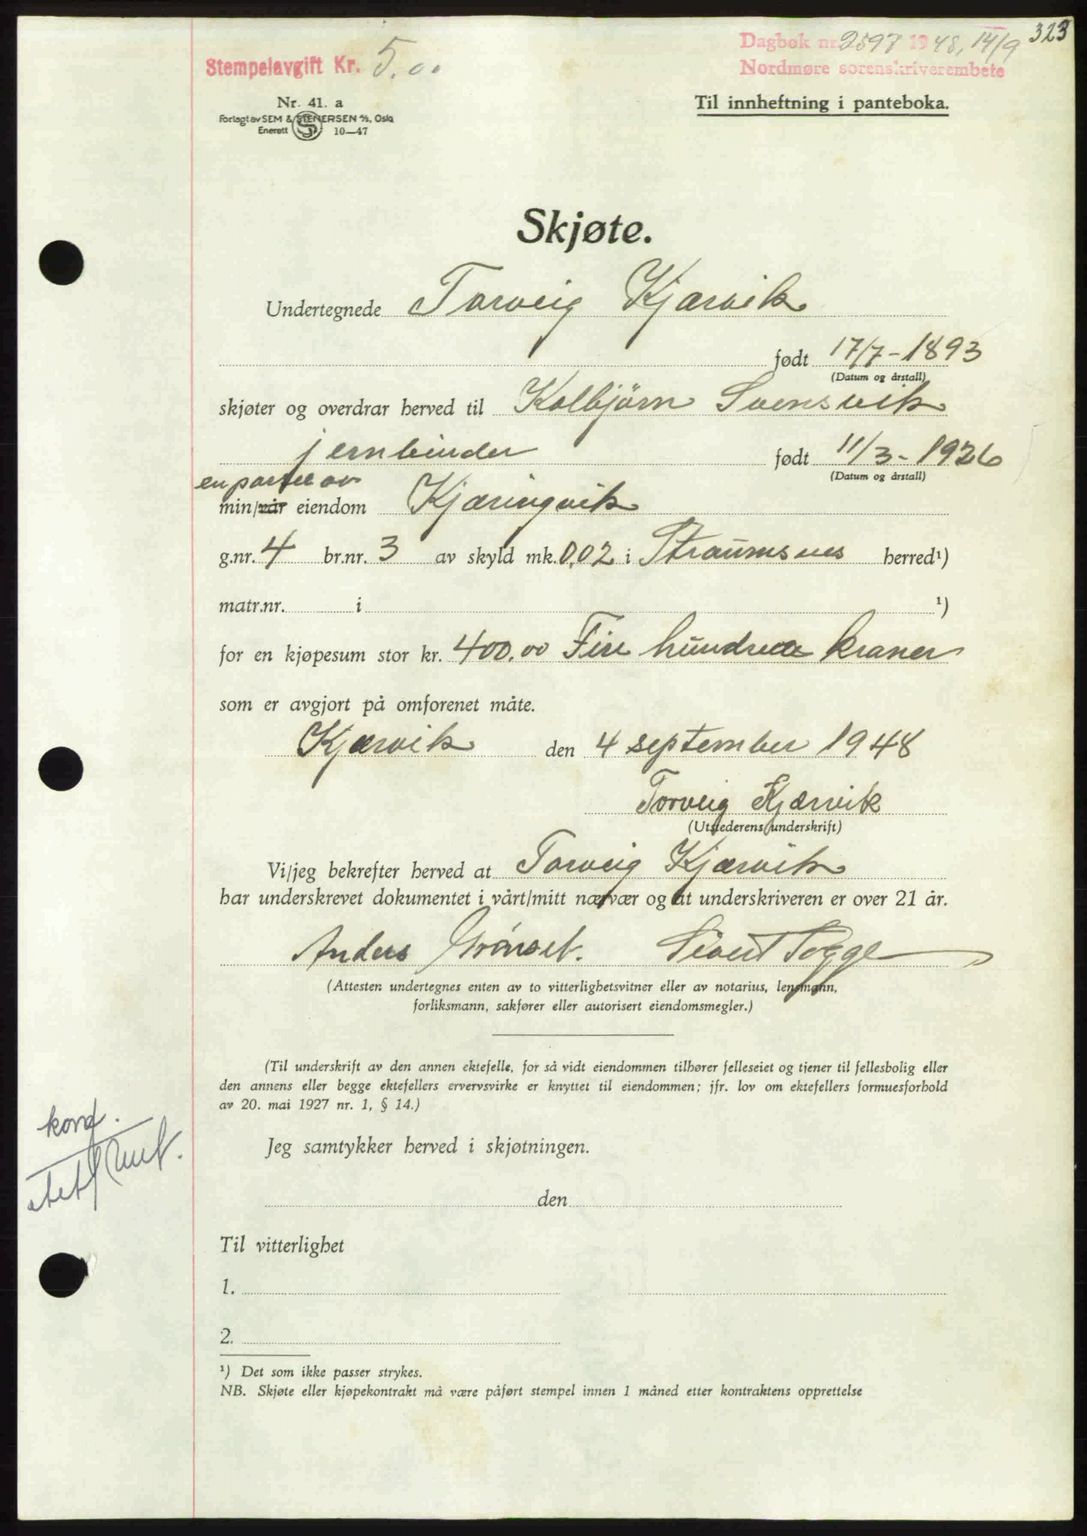 323
Dagbok nr. 2597 1948, 14/9
Nordmøre sorenskriverembete
Stempelavgift Kr. 5.00
Nr. 41. a
Forlagt av SEM & STENERSEN A/S, Oslo
Enerett S 10—47
Til innheftning i panteboka.
Skjøte.
Undertegnede Torveig Kjærvik
født 17/7-1893
(Datum og årstall)
skjøter og overdrar herved til Kolbjörn Svensvik
jernbinder født 11/3-1926
(Datum og årstall)
en parsel av
min/vår eiendom Kjæringvik
g.nr. 4 br.nr. 3 av skyld mk. 0,02 i Straumsnes herred¹)
matr.nr. i ¹)
for en kjøpesum stor kr. 400.00 Fire hundrede kroner
som er avgjort på omforenet måte.
Kjærvik den 4 september 1948
Torveig Kjærvik
(Utstederens underskrift)
Vi/jeg bekrefter herved at Torveig Kjærvik
har underskrevet dokumentet i vårt/mitt nærvær og at underskriveren er over 21 år.
Anders Grönset. Sivert Togge
(Attesten undertegnes enten av to vitterlighetsvitner eller av notarius, lensmann,
forliksmann, sakfører eller autorisert eiendomsmegler.)
(Til underskrift av den annen ektefelle, for så vidt eiendommen tilhører felleseiet og tjener til fellesbolig eller
den annens eller begge ektefellers ervervsvirke er knyttet til eiendommen; jfr. lov om ektefellers formuesforhold
av 20. mai 1927 nr. 1, § 14.)
kond.
Jeg samtykker herved i skjøtningen.
den
Til vitterlighet
1.
2.
¹) Det som ikke passer strykes.
NB. Skjøte eller kjøpekontrakt må være påført stempel innen 1 måned etter kontraktens opprettelse